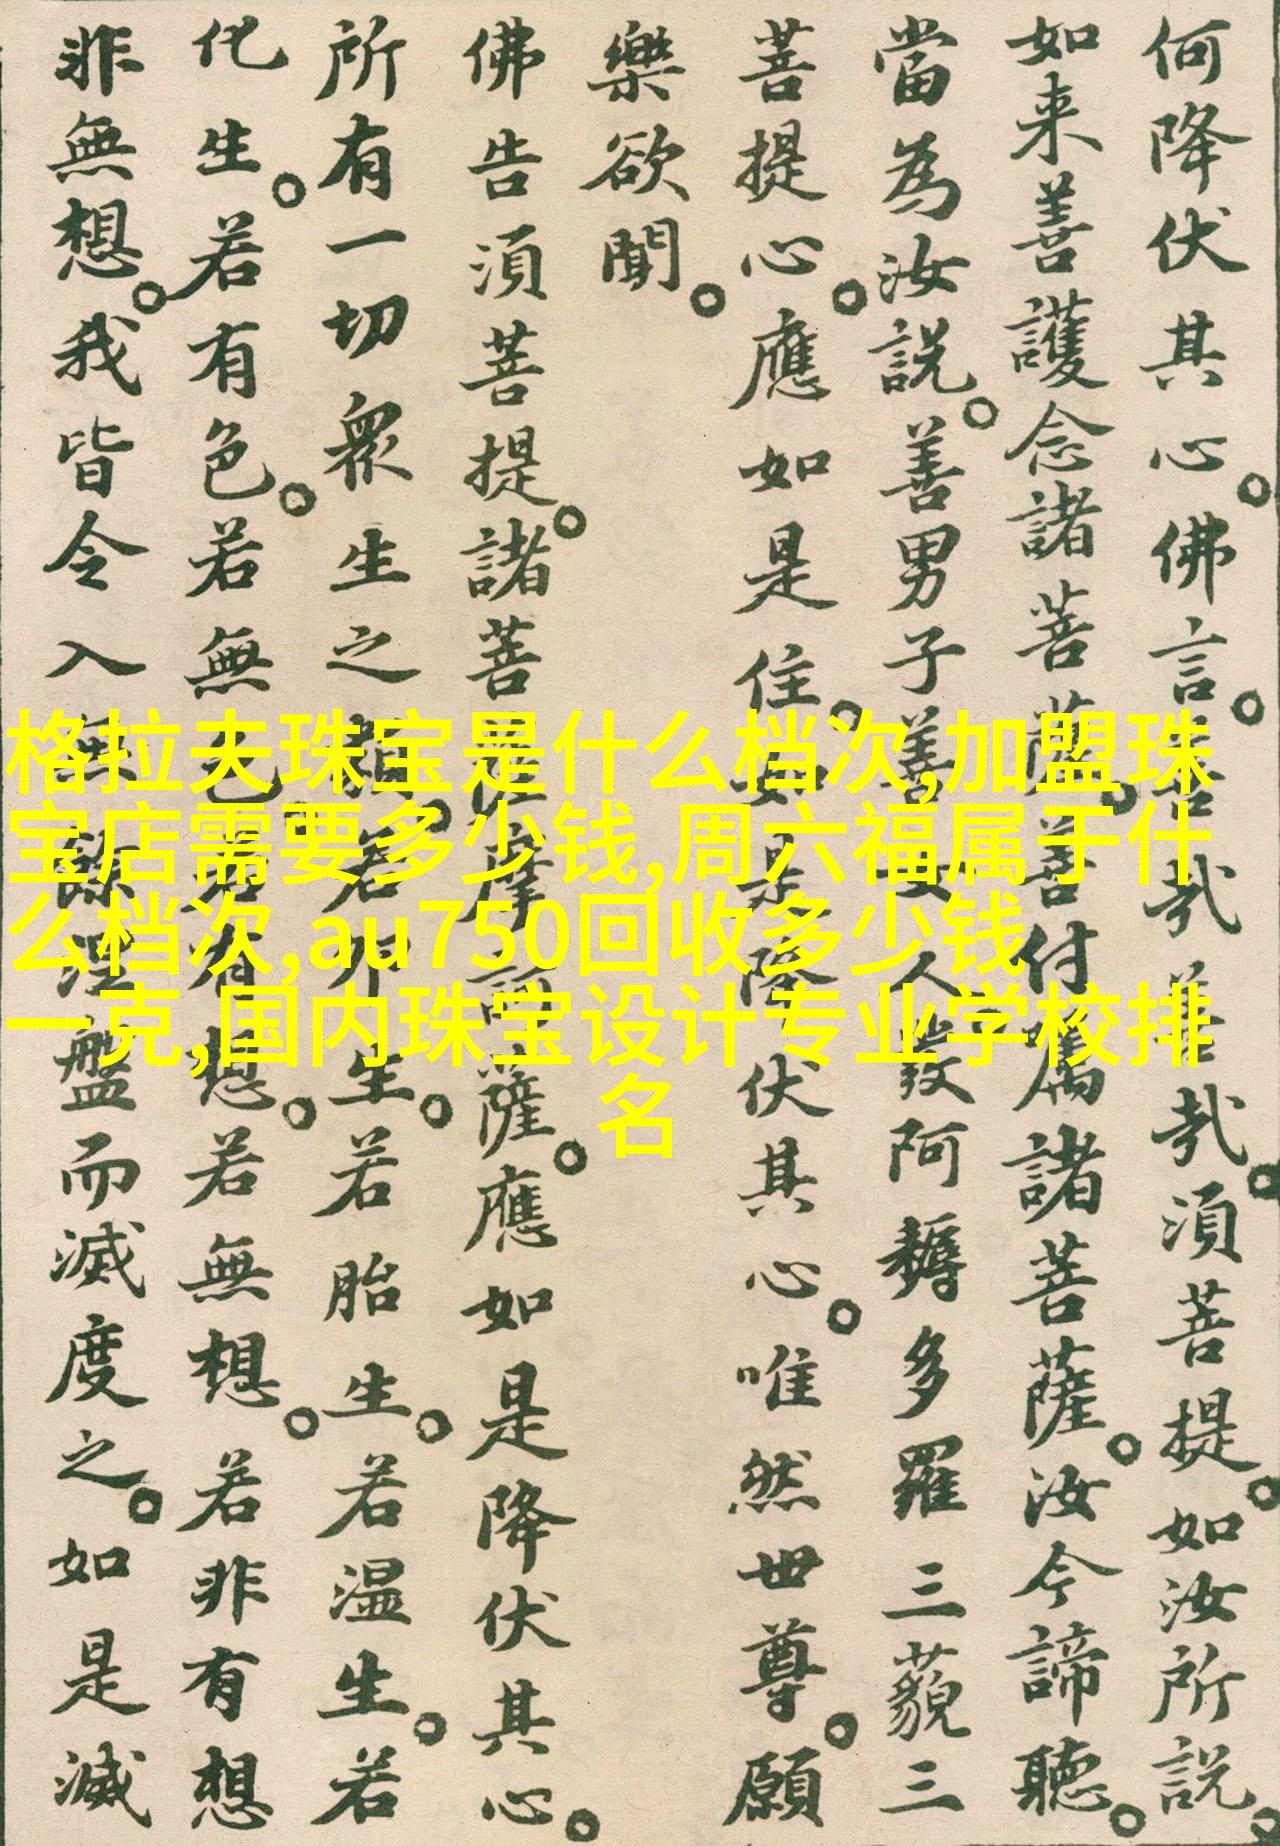 何降伏其心。佛言。善哉善哉。須菩提。如汝所説。
如来善護念諸菩薩。善付嘱諸菩薩。汝今諦聽。
當為汝説。善男子善女人發阿耨多羅三藐三
菩提心。應如是住。如是降伏其心。唯然世尊。願
樂欲聞。
佛告須菩提。諸菩薩摩訶薩。應如是降伏其心。
所有一切衆生之類。若卵生。若胎生。若温生。若
化生。若有色。若無色。若有想。若無想。若非有想
非無想。我皆令入無餘涅盤而滅度之。如是滅
格拉夫珠宝是什么档次,加盟珠
宝店需要多少钱,周六福属于什
么档次,au750回收多少钱
一克,国内珠宝设计专业学校排
名